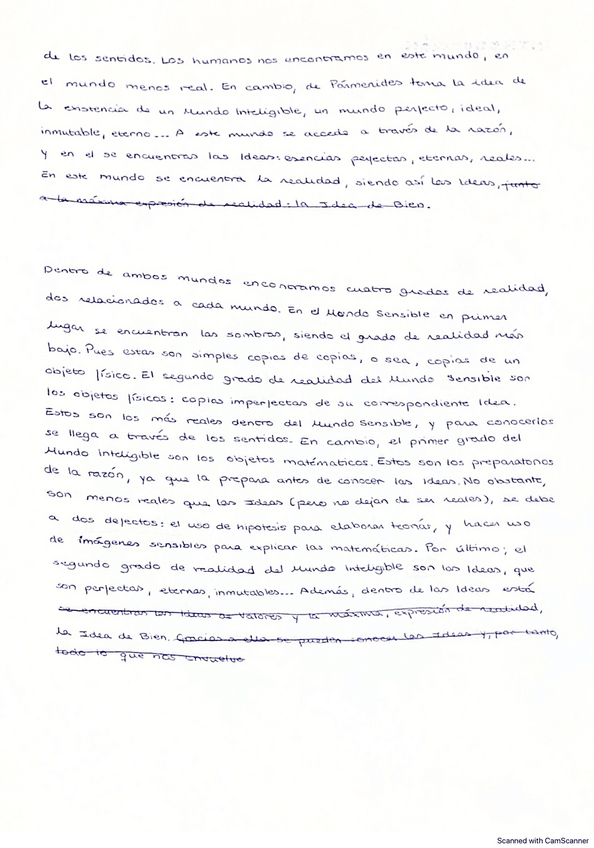 de los sentidos. Los humanos nos encontramos en este mundo, en
el mundo menos real. En cambio, de Parmenides toma la idea de
la existencia de un Mundo Inteligible, un mundo perfecto, ideal,
inmutable, eterno... A este mundo se accede a través de la razón,
y en el se encuentras las Ideas: esencias perfectas, eternas, reales...
En este mundo se encuentra la realidad, siendo así las Ideas, junto
a la máxima expresión de realidad: la Idea de Bien.
Dentro de ambos mundos encontramos cuatro grados de realidad,
dos relacionados a cada mundo. En el Mundo Sensible en primer
lugar se encuentran las sombras, siendo el grado de realidad más
bajo. Pues estas son simples copias de copias, o sea, copias de un
objeto físico. El segundo grado de realidad del Mundo Sensible son
los objetos físicos: copias imperfectas de su correspondiente Idea.
Estos son los más reales dentro del Mundo Sensible, y para conocerlos
se llega a través de los sentidos. En cambio, el primer grado del
Mundo Inteligible son los objetos matemáticos. Estos son los preparatorios
de la razón, ya que la prepara antes de conocer las Ideas. No obstante,
son menos reales que las Ideas (pero no dejan de ser reales), se debe
a dos defectos: el uso de hipotesis para elaborar teorías, y hacer uso
de imágenes sensibles para explicar las matemáticas. Por último; el
segundo grado de realidad del Mundo Inteligible son las Ideas, que
son perfectas, eternas, inmutables... Además, dentro de las Ideas está
se encuentran las Ideas de Valores y la máxima, expresión de realidad,
la Idea de Bien. Gracias a ella se pueden conocer las Ideas y, por tanto,
todo lo que nos envuelve
Scanned with CamScanner